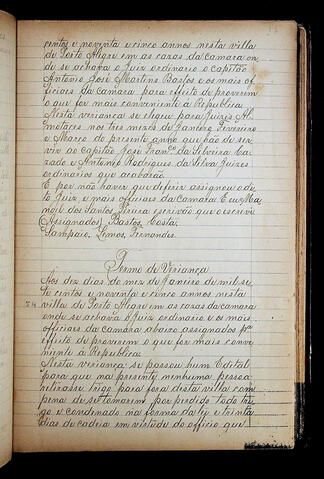 centos e noventa e cinco annos nesta villa
de Porto Alegre em as cazas da camara on
de se achava o Juiz ordinario o capitão
Antonio José Martins Bastos e os mais of
ficiaes da camara para effeito de proverem
o que for mais conveniente á Republica
Nesta veriança se elegeu para Juizes Al
motaces nos trez mezes de Janeiro Fevereiro
e Março do presente anno que hão de ser
vir ao Capitão José Franco da Silveira Ca
zado e Antonio Rodrigues da Silva Juizes
ordinarios que acabarão
E por não haver que deferir assignou o di
to Juiz e mais officiaes da Camara E eu Ma
noel dos Santos Pereira escrivão que o escrevi
(Assignados) Bastos, Costa,
Sampaio, Lemos, Fernandes.
Termo de Veriança
Aos dez dias do mez de Janeiro de mil se
te centos e noventa e cinco annos nesta
villa de Porto Alegre em as cazas da camara
onde se achava o Juiz ordinario e os mais
officiaes da camara abaixo assignados pa
effeito de proverem o que for mais conve
niente á Republica
Nesta veriança se passou hum Edital
para que na presente nenhuma pessoa
retirasse trigo para fora desta villa com
pena de se tomarem por perdido todo tri
go e condenado na forma da ley e trinta
dias de cadeia em virtude do officio que